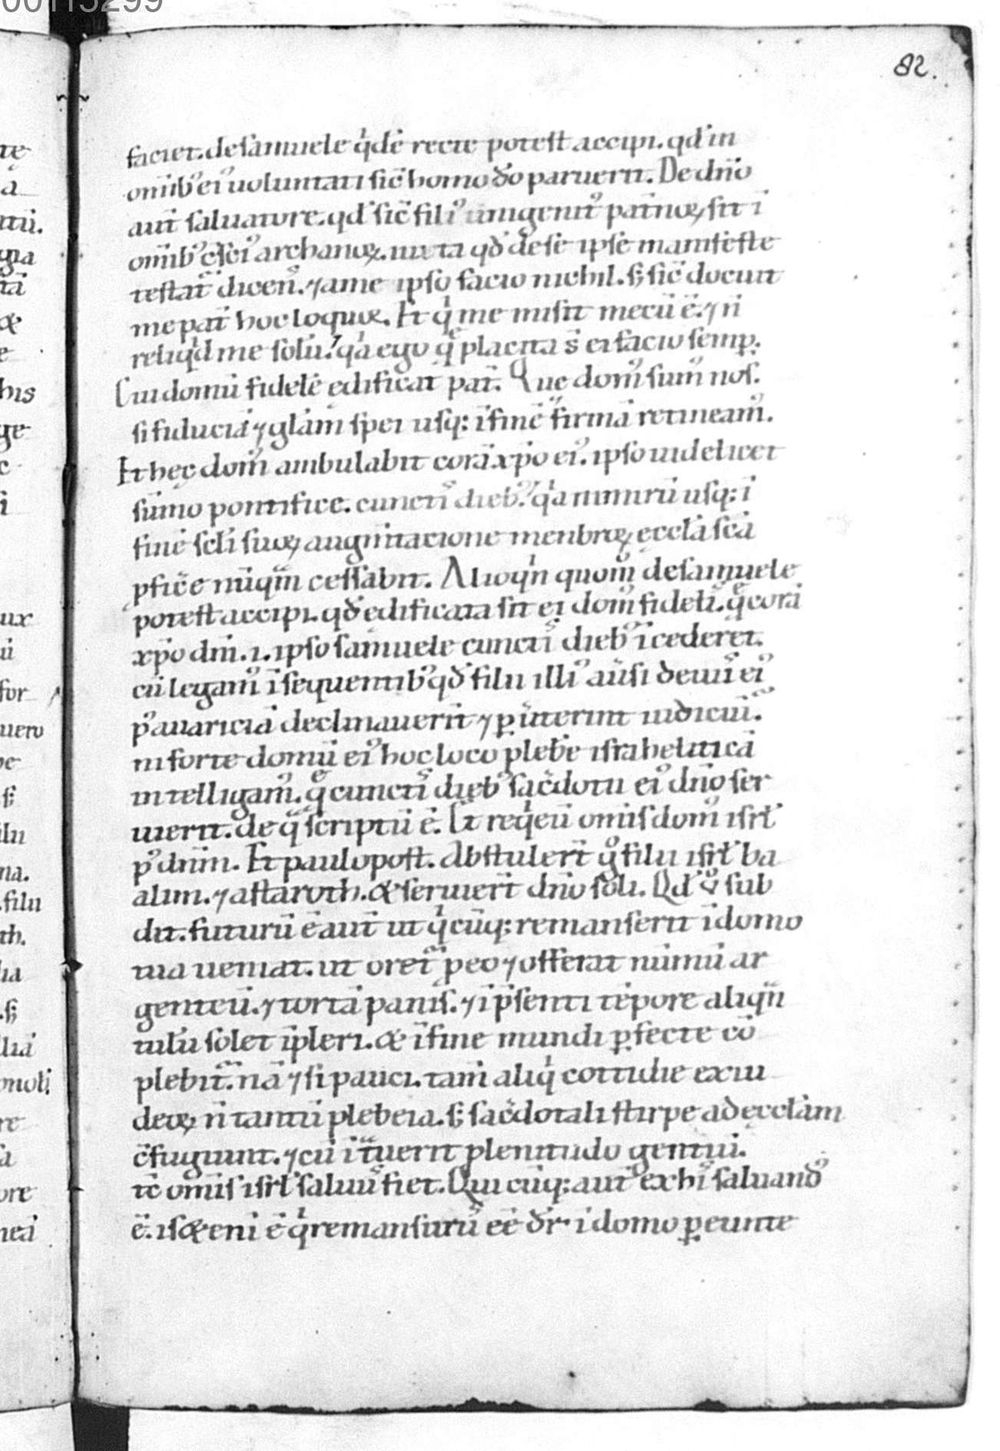 00115299
82.
faciet. desamuele q̇dē recte potest accipi. qđ in
omib; ei᷒ uoluntati sic̄ homo dō paruerit. De dn̄o
aut̄ saluatore. qđ sic̄ fili᷒ unigenit᷒ patnoꝝ sit ī
testat̄ dicen᷒. ⁊ ame ipso facio nichil. s; sic̄ docuit
me pat̄ hoc loquor. Et q̇ me misit mecū ē. ⁊ n̄
reliq̇d me solū. q̇a ego q̄ placita s̄ ei facio semp̱.
Cui domū fidelē edificat pat̄. Que dom᷒ sum᷒ nos.
si fiduciā ⁊ gl̄am spei usq; ī finē firmā retineam᷒.
Et hec dom᷒ ambulabit corā xp̄o ei᷒. ipso uidelicet
sūmo pontifice. cuncti᷒ dieb᷒. q̇a nimirū usq; ī
finē sc̄li suoꝝ augm̄tacione menbroꝝ eccl̄a sc̄a
pfic̄e nūq̄m cessabit. Alioq̇n quom̊ desamuele
potest accipi. qđ edificata sit ei dom᷒ fideli᷒. q̄ corā
xp̄o dn̄i .i. ipso samuele cuncti᷒ dieb᷒ īcederet.
cū legam᷒ ī sequentib᷒ qđ filii illi᷒ ausi deuii ei᷒
p᷒ auariciā declinauerīt ⁊ p̱u̇terint iudiciū.
ni forte domū ei᷒ hoc loco plebē israheliticā
intelligam᷒. q̄ cuncti᷒ dieb᷒ sac̄dotii ei᷒ dn̄o ser
uierit. de q̄ scriptū ē. Et reqēuī omis dom᷒ isrl̄
p᷒ dnm̄. Et paulo post. Abstulerīt g᷒ filii isrl̄ ba
alim. ⁊ astaroth. & seruierīt dn̄o soli. Qđ ů sub
dit. futurū ē aut̄ ut q̇cūq; remanserit ī domo
tua ueniat. ut oret̄ p eo ⁊ offerat nūmū ar
genteū. ⁊ tortā panis. ⁊ ī p̄senti tēpore aliq̄n
tulū solet īpleri. & ī fine mundi p̱fecte cō
plebit̄. nā ⁊ si pauci. tam̄ aliq̇ cottidie ex iu
deoꝝ n̄ tantū plebeia. s; sac̄dotali stirpe ad eccl̄am
c̄fugiunt. ⁊ cū ītuerit plenitudo gentiū.
tc̄ omis isrl̄ saluu᷒ fiet. Qui cūq; aut̄ ex hi᷒ saluand᷒
ē. is & enī ē q̇ remansuru᷒ eē dr̄. ī domo p̱eunte